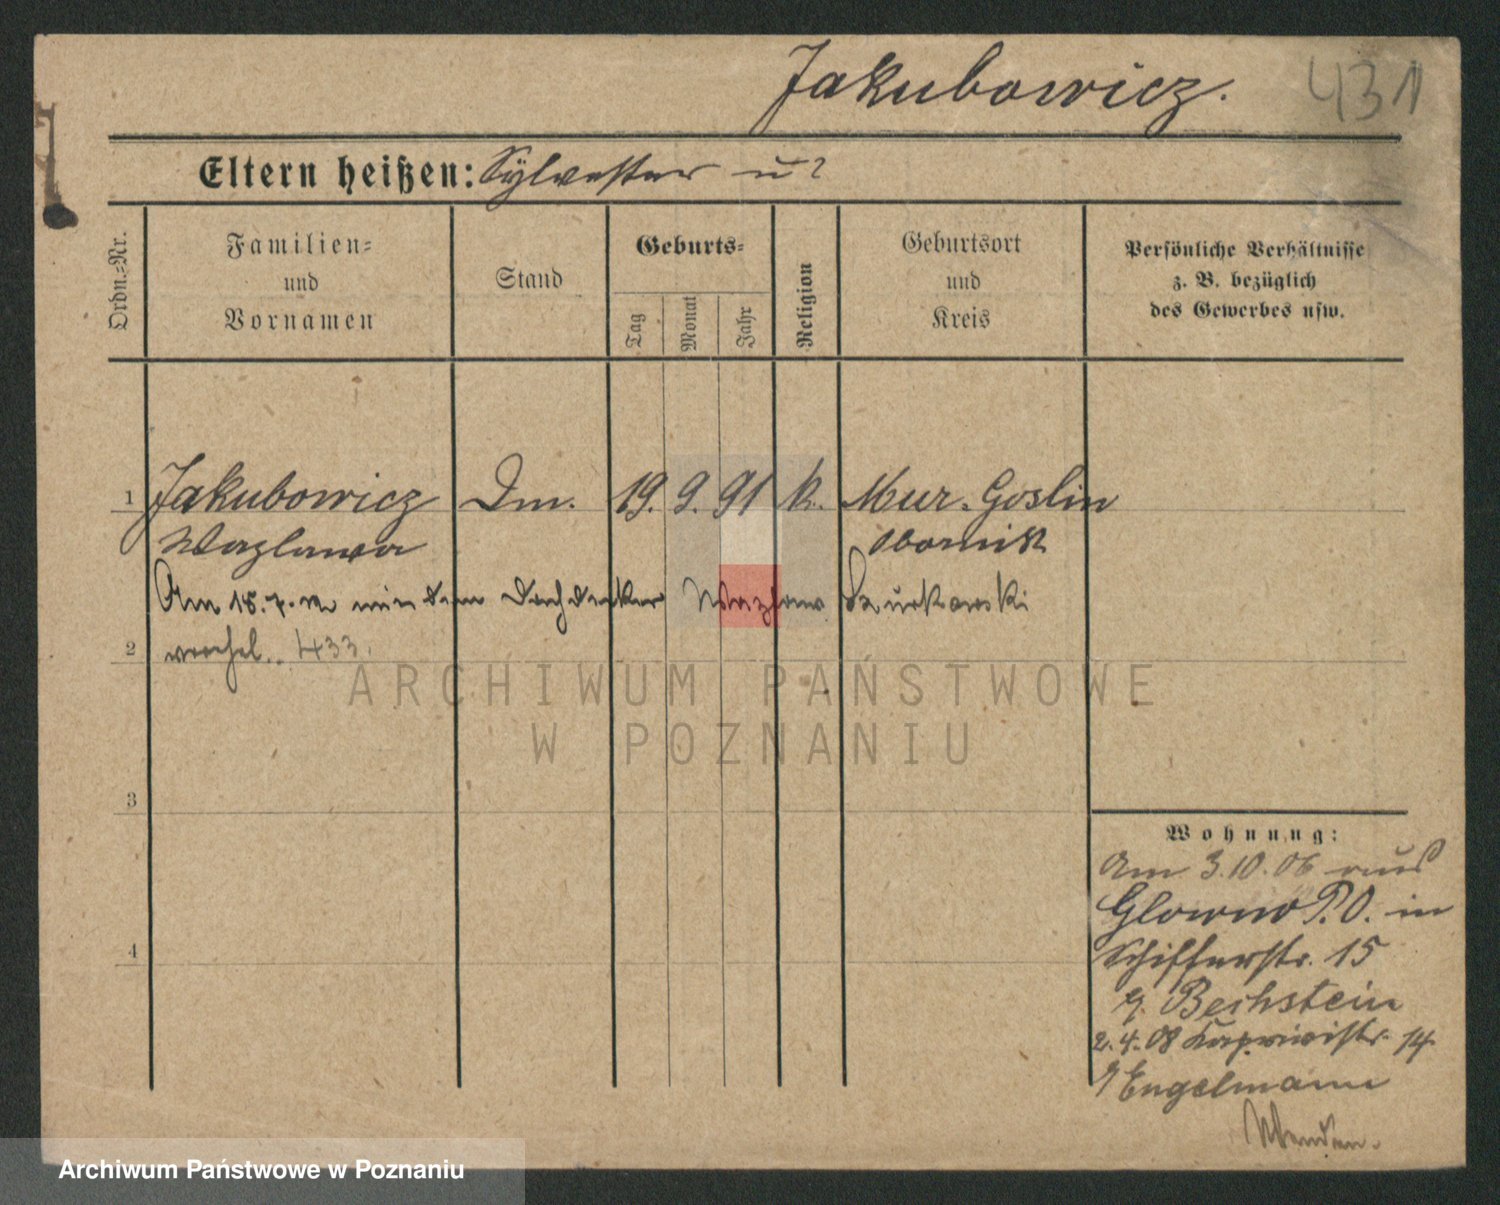 Jakubowicz.
431
Eltern heißen: Sylvester u ?
Ordn.=Nr.
Familien=
und
Vornamen
Stand
Geburts=
Tag
Monat
Jahr
Religion
Geburtsort
und
Kreis
Persönliche Verhältnisse
z. B. bezüglich
des Gewerbes usw.
1 Jakubowicz Dm. 19. 9. 91 k. Mur. Goslin
Wazlawa Obornik
Am 18.7. mit dem Dachdecker Wazlaw
2 verehel. 433.
3
4
Wohnung:
Am 3.10.06 aus
Glowno P.O. in
Schifferstr. 15
b. Bechstein
2.4.08 Kapriwistr. 14
b Engelmann
ARCHIWUM PAŃSTWOWE
W POZNANIU
Archiwum Państwowe w Poznaniu